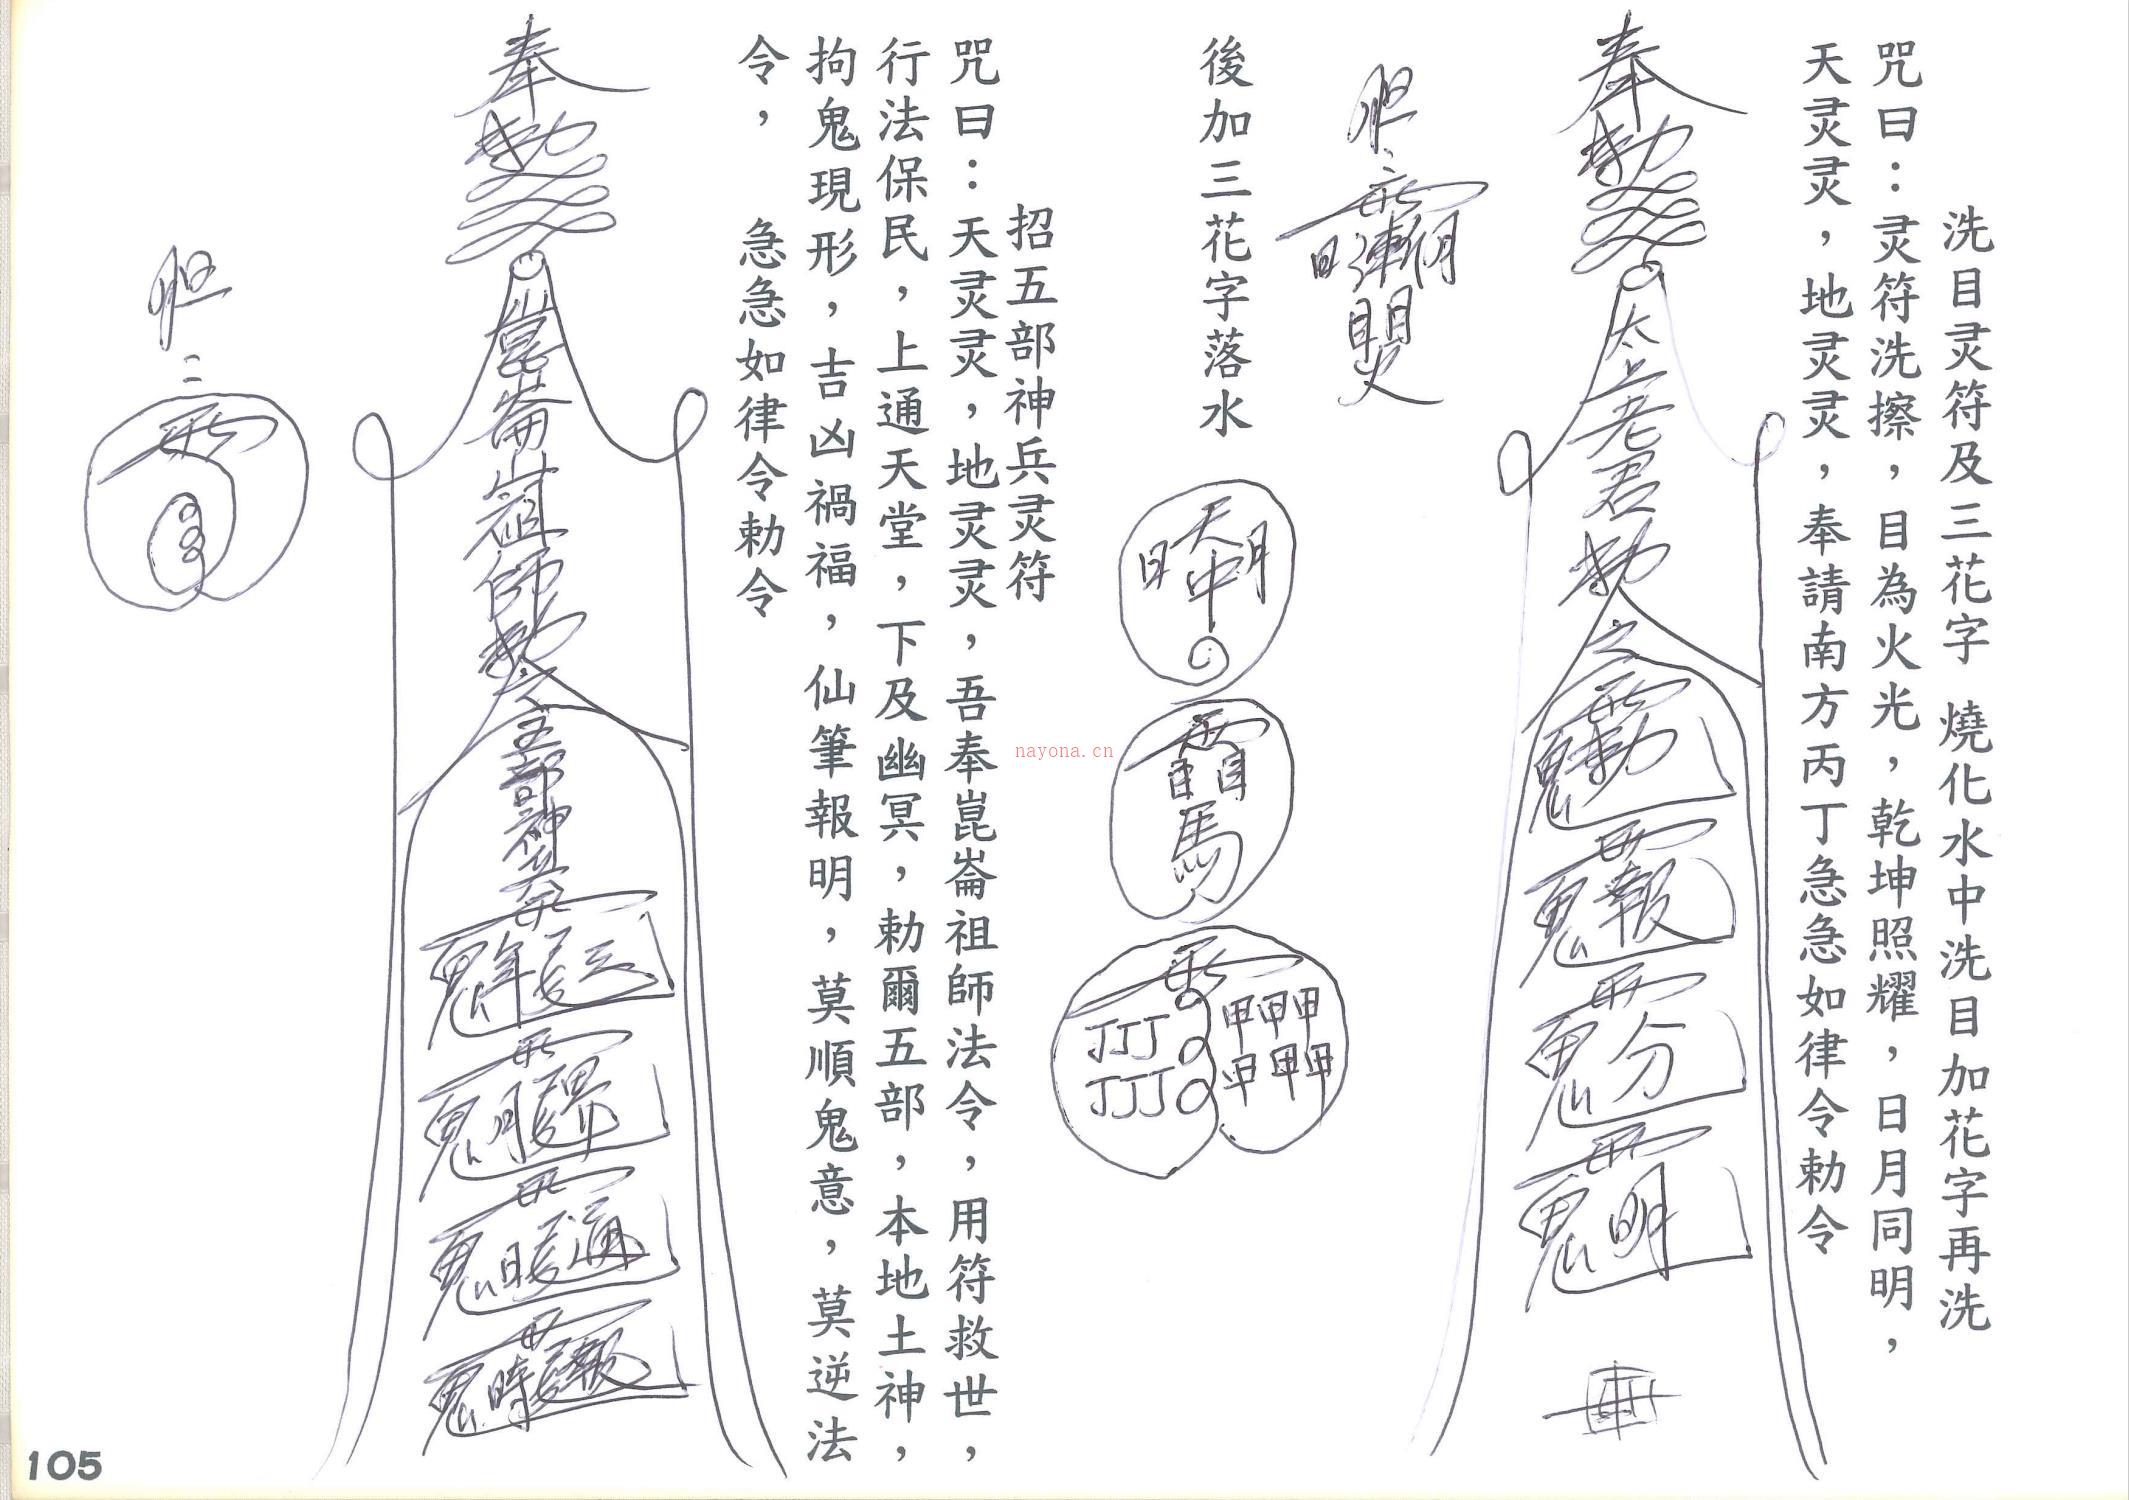 洗目灵符及三花字 燒化水中洗目加花字再洗
咒曰：灵符洗擦，目為火光，乾坤照耀，日月同明，
天灵灵，地灵灵，奉請南方丙丁急急如律令勅令
奉勅
太上老君勅令
胆
後加三花字落水
天
日 月
中
馬
丁丁丁
丁丁丁
甲甲甲
甲甲甲
招五部神兵灵符
咒曰：天灵灵，地灵灵，吾奉崑崙祖師法令，用符救世，
行法保民，上通天堂，下及幽冥，勅爾五部，本地土神，
拘鬼現形，吉凶禍福，仙筆報明，莫順鬼意，莫逆法
令， 急急如律令勅令
奉勅
崑崙祖師勅令
五部神兵
胆
nayona.cn
105